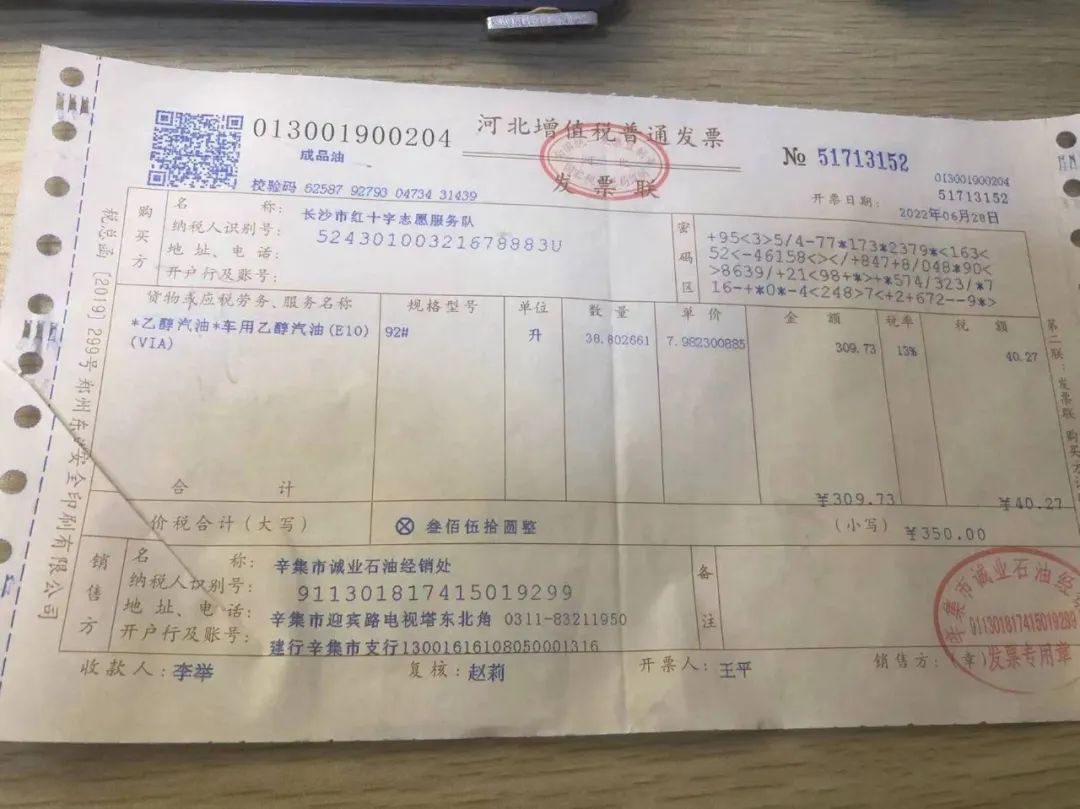 013001900204
河北增值税普通发票
发票联
№ 51713152
成品油
013001900204
51713152
校验码 62587 92793 04734 31439
开票日期: 2022年06月28日
购买方
名 称: 长沙市红十字志愿服务队
纳税人识别号: 52430100321678883U
地址、电话:
开户行及账号:
密码区
+95<3>5/4-77*173*2379*<163<
52<-46158<></+847+8/048*90<
>8639/+21<98+*>+*574/323/*7
16-+*0*-4<248>7<+2+672--9*>
货物或应税劳务、服务名称 规格型号 单位 数量 单价 金额 税率 税额
*乙醇汽油*车用乙醇汽油(E10) 92# 升 38.802661 7.982300885 309.73 13% 40.27
(VIA)
合 计 ¥309.73 ¥40.27
价税合计(大写) ⊗ 叁佰伍拾圆整 (小写) ¥350.00
销售方
名 称: 辛集市诚业石油经销处
纳税人识别号: 911301817415019299
地址、电话: 辛集市迎宾路电视塔东北角 0311-83211950
开户行及账号: 建行辛集市支行13001616108050001316
备注
收款人: 李举 复核: 赵莉 开票人: 王平 销售方:(章)
辛集市诚业石油经
911301817415019299
发票专用章
税总函〔2019〕299号郑州东
安全印刷有限公司
第二联:发票联
购买方